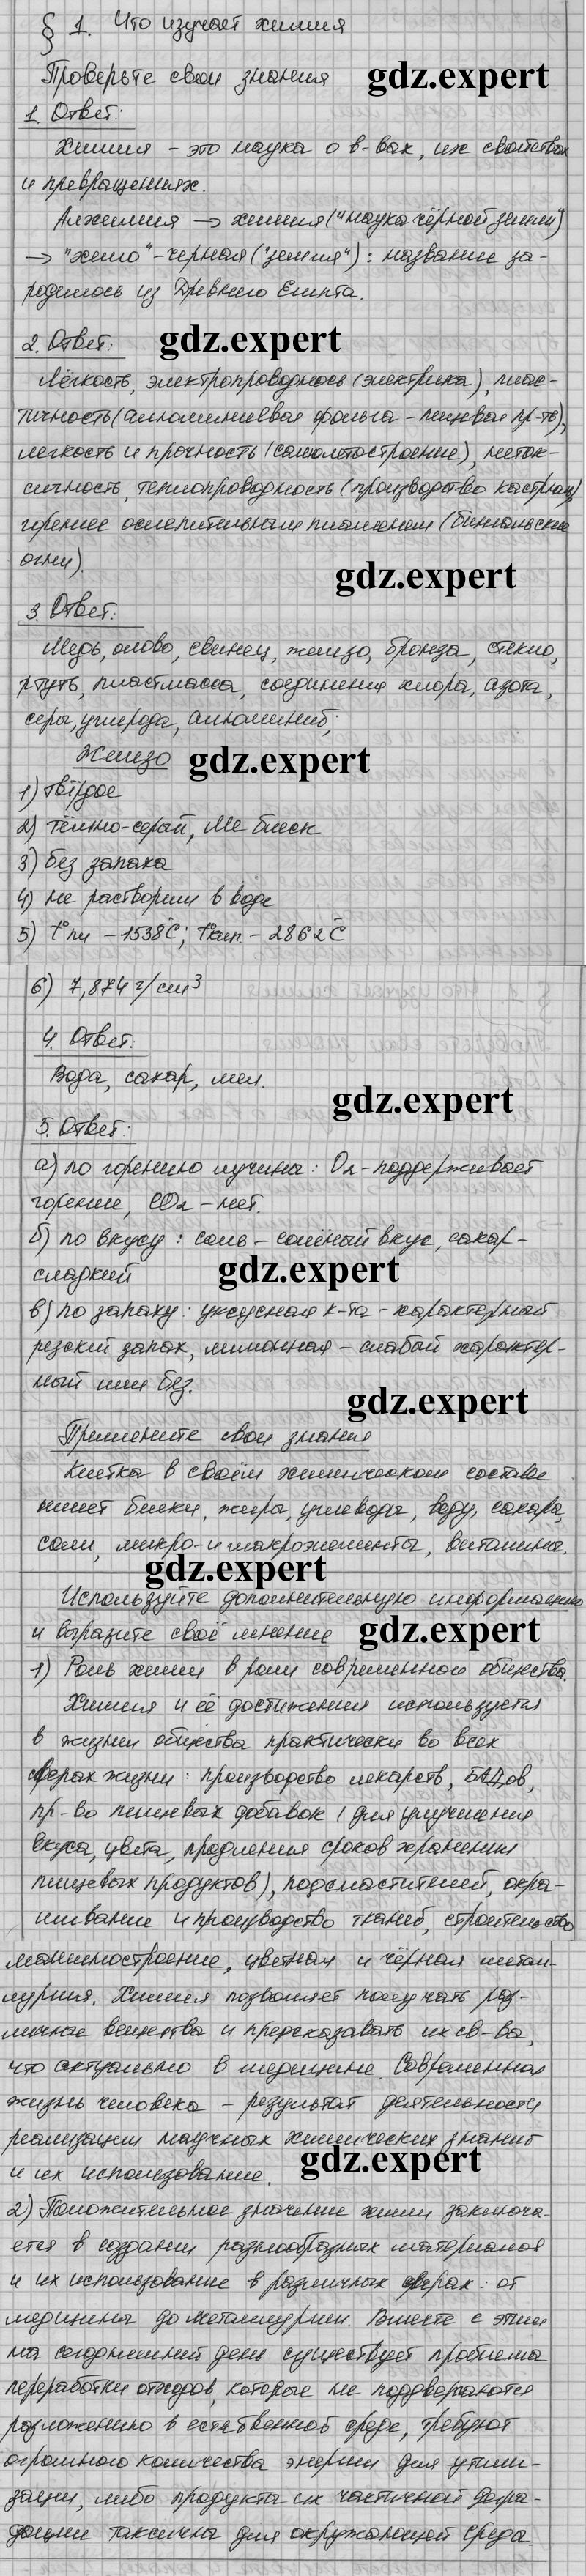 § 1. Что изучает химия
Проверьте свои знания gdz.expert
1. Ответ:
Химия – это наука о в-вах, их свойствах
и превращениях.
Алхимия → химия ("наука чёрной земли")
→ "хемо" – черная ("земля"): название за-
родилось из Древнего Египта.
2. Ответ: gdz.expert
Лёгкость, электропроводность (электрика), плас-
тичность (алюминиевая фольга – пищевая пр-ть),
легкость и прочность (самолетостроение), неток-
сичность, теплопроводность (производство кастрюль),
горение ослепительным пламенем (бенгальские
огни).
gdz.expert
3. Ответ:
Медь, олово, свинец, железо, бронза, стекло,
ртуть, пластмасса, соединения хлора, азота,
серы, углерода, алюминий;
Железо gdz.expert
1) твёрдое
2) тёмно-серый, Ме блеск
3) без запаха
4) не растворим в воде
5) t° пл – 1538°C; t°кип. – 2862°C
6) 7,874 г/см³
4. Ответ:
Вода, сахар, мел.
gdz.expert
5. Ответ:
а) по горению лучина: O₂ – поддерживает
горение, CO₂ – нет.
б) по вкусу: соль – солёный вкус, сахар –
сладкий gdz.expert
в) по запаху: уксусная к-та – характерный
резкий запах, лимонная – слабый характер-
ный или без.
gdz.expert
Примените свои знания
Клетка в своём химическом составе
имеет белки, жиры, углеводы, воду, сахара,
соли, микро- и макроэлементы, витамины.
gdz.expert
Используйте дополнительную информацию
и выразите своё мнение gdz.expert
1) Роль химии в роли современного общества.
Химия и её достижения используется
в жизни общества практически во всех
сферах жизни: производство лекарств, БАДов,
пр-во пищевых добавок (для улучшения
вкуса, цвета, продления сроков хранения
пищевых продуктов), подсластителей, окра-
шивание и производство тканей, строительство
машиностроение, цветная и чёрная метал-
лургия. Химия позволяет получать раз-
личные вещества и предсказывать их св-ва,
что актуально в медицине. Современная
жизнь человека – результат деятельности
реализации научных химических знаний
и их использование. gdz.expert
2) Положительное значение химии заключа-
ется в создании разнообразных материалов
и их использование в различных сферах: от
медицины до металлургии. Вместе с этим
на сегодняшний день существует проблема
переработки отходов, которые не поддвергаются
разложению в естественной среде, требуют
огромного количества энергии для утили-
зации, либо продукты их частичной дегра-
дации токсичны для окружающей среды.